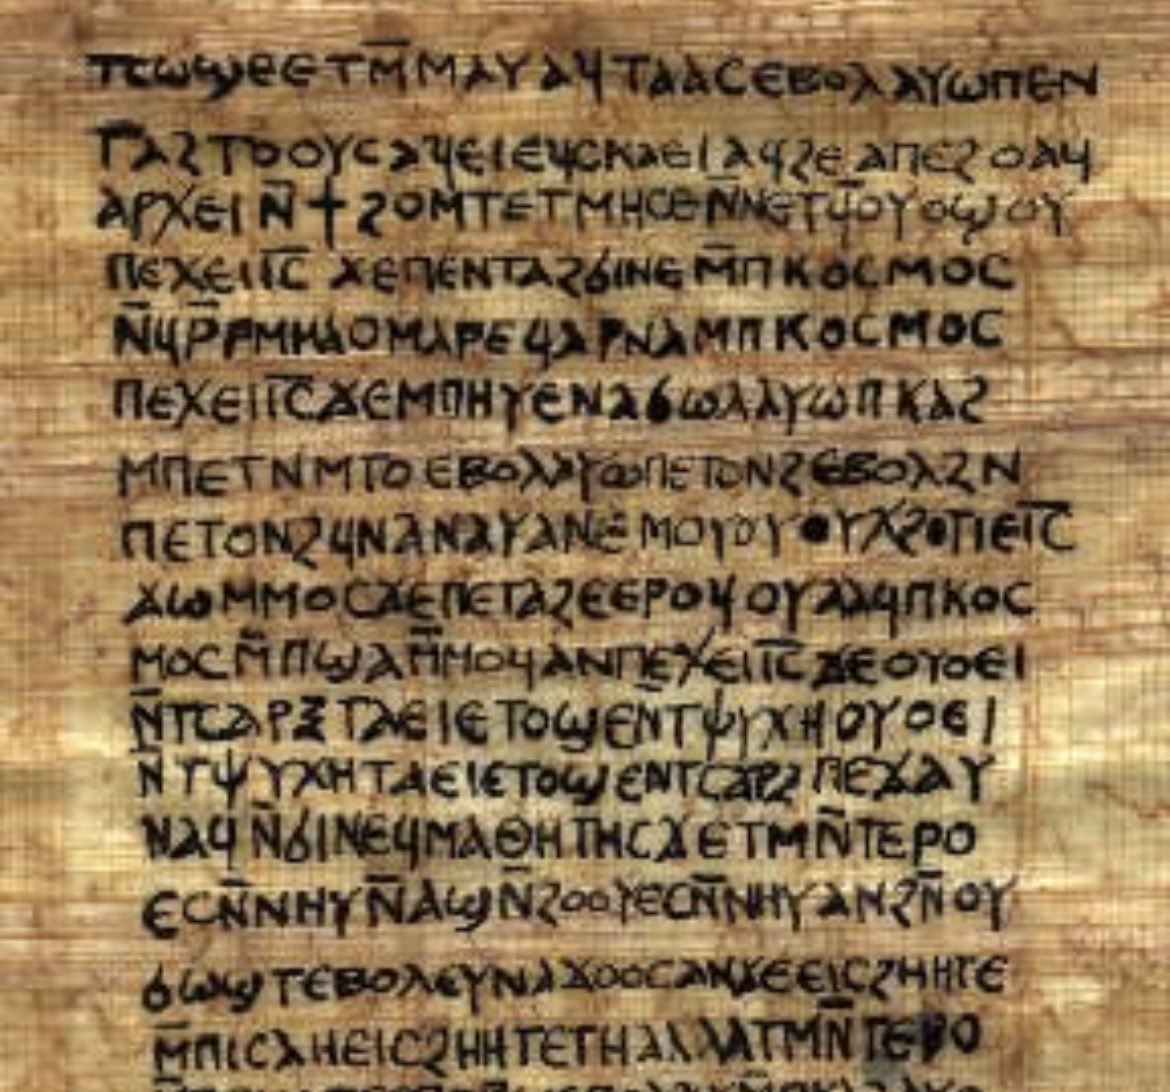 ⲡⲥⲱϣⲉ ⲉⲧⲙ̄ⲙⲁⲩ ⲁϥⲧⲁⲁⲥ ⲉⲃⲟⲗ ⲁⲩⲱ ⲡⲉⲛ
ⲧⲁϩ ⲧⲟⲟⲩⲥ ⲁϥⲉⲓ ⲉϥⲥⲕⲁⲉⲓ ⲁϥϩⲉ ⲁⲡⲉϩⲟ ⲁϥ
ⲁⲣⲭⲉⲓ ⲛ̄ϯ ϩⲟⲙⲧ ⲉⲧⲙⲏⲥⲉ ⲛ̄ⲛⲉⲧϥ̄ⲟⲩⲟϣⲟⲩ
ⲡⲉϫⲉ ⲓ̅ⲥ̅ ϫⲉ ⲡⲉⲛⲧⲁϩϭⲓⲛⲉ ⲙ̄ⲡⲕⲟⲥⲙⲟⲥ
ⲛ̄ϥⲣ̄ⲣⲙⲙⲁⲟ ⲙⲁⲣⲉϥⲁⲣⲛⲁ ⲙⲡⲕⲟⲥⲙⲟⲥ
ⲡⲉϫⲉ ⲓ̅ⲥ̅ ϫⲉ ⲙⲡⲏⲩⲉ ⲛⲁϭⲱⲗ ⲁⲩⲱ ⲡⲕⲁϩ
ⲙⲡⲉⲧⲛⲙⲧⲟ ⲉⲃⲟⲗ ⲁⲩⲱ ⲡⲉⲧⲟⲛϩ ⲉⲃⲟⲗ ϩⲛ
ⲡⲉⲧⲟⲛϩ ϥⲛⲁⲛⲁⲩ ⲁⲛ ⲉⲙⲟⲩ ⲟⲩⲭ ϩⲟⲧⲓ ⲉⲓ̅ⲥ̅
ϫⲱ ⲙⲙⲟⲥ ϫⲉ ⲡⲉⲧⲁϩⲉ ⲉⲣⲟϥ ⲟⲩⲁⲁϥ ⲡⲕⲟⲥ
ⲙⲟⲥ ⲙ̄ⲡϣⲁ ⲙ̄ⲙⲟϥ ⲁⲛ ⲡⲉϫⲉ ⲓ̅ⲥ̅ ϫⲉ ⲟⲩⲟⲉⲓ
ⲛ̄ⲧⲥⲁⲣⲝ ⲧⲁⲉⲓ ⲉⲧⲟϣⲉ ⲛ̄ⲧⲯⲩⲭⲏ ⲟⲩⲟⲉⲓ
ⲛⲧⲯⲩⲭⲏ ⲧⲁⲉⲓ ⲉⲧⲟϣⲉ ⲛⲧⲥⲁⲣϩ ⲡⲉϫⲁⲩ
ⲛⲁϥ ⲛ̄ϭⲓ ⲛⲉϥⲙⲁⲑⲏⲧⲏⲥ ϫⲉ ⲧⲙⲛ̄ⲧⲉⲣⲟ
ⲉⲥⲛ̄ⲛⲏⲩ ⲛ̄ⲁϣ ⲛ̄ϩⲟⲟⲩ ⲉⲥⲛ̄ⲛⲏⲩ ⲁⲛ ϩⲛ̄ ⲟⲩ
ϭⲱϣⲧ ⲉⲃⲟⲗ ⲉⲩⲛⲁϫⲟⲟⲥ ⲁⲛ ϫⲉ ⲉⲓⲥϩⲏⲏⲧⲉ
ⲙ̄ⲡⲓⲥⲁ ⲏ ⲉⲓⲥϩⲏⲏⲧⲉ ⲧⲏ ⲁⲗⲗⲁ ⲧⲙⲛ̄ⲧⲉⲣⲟ